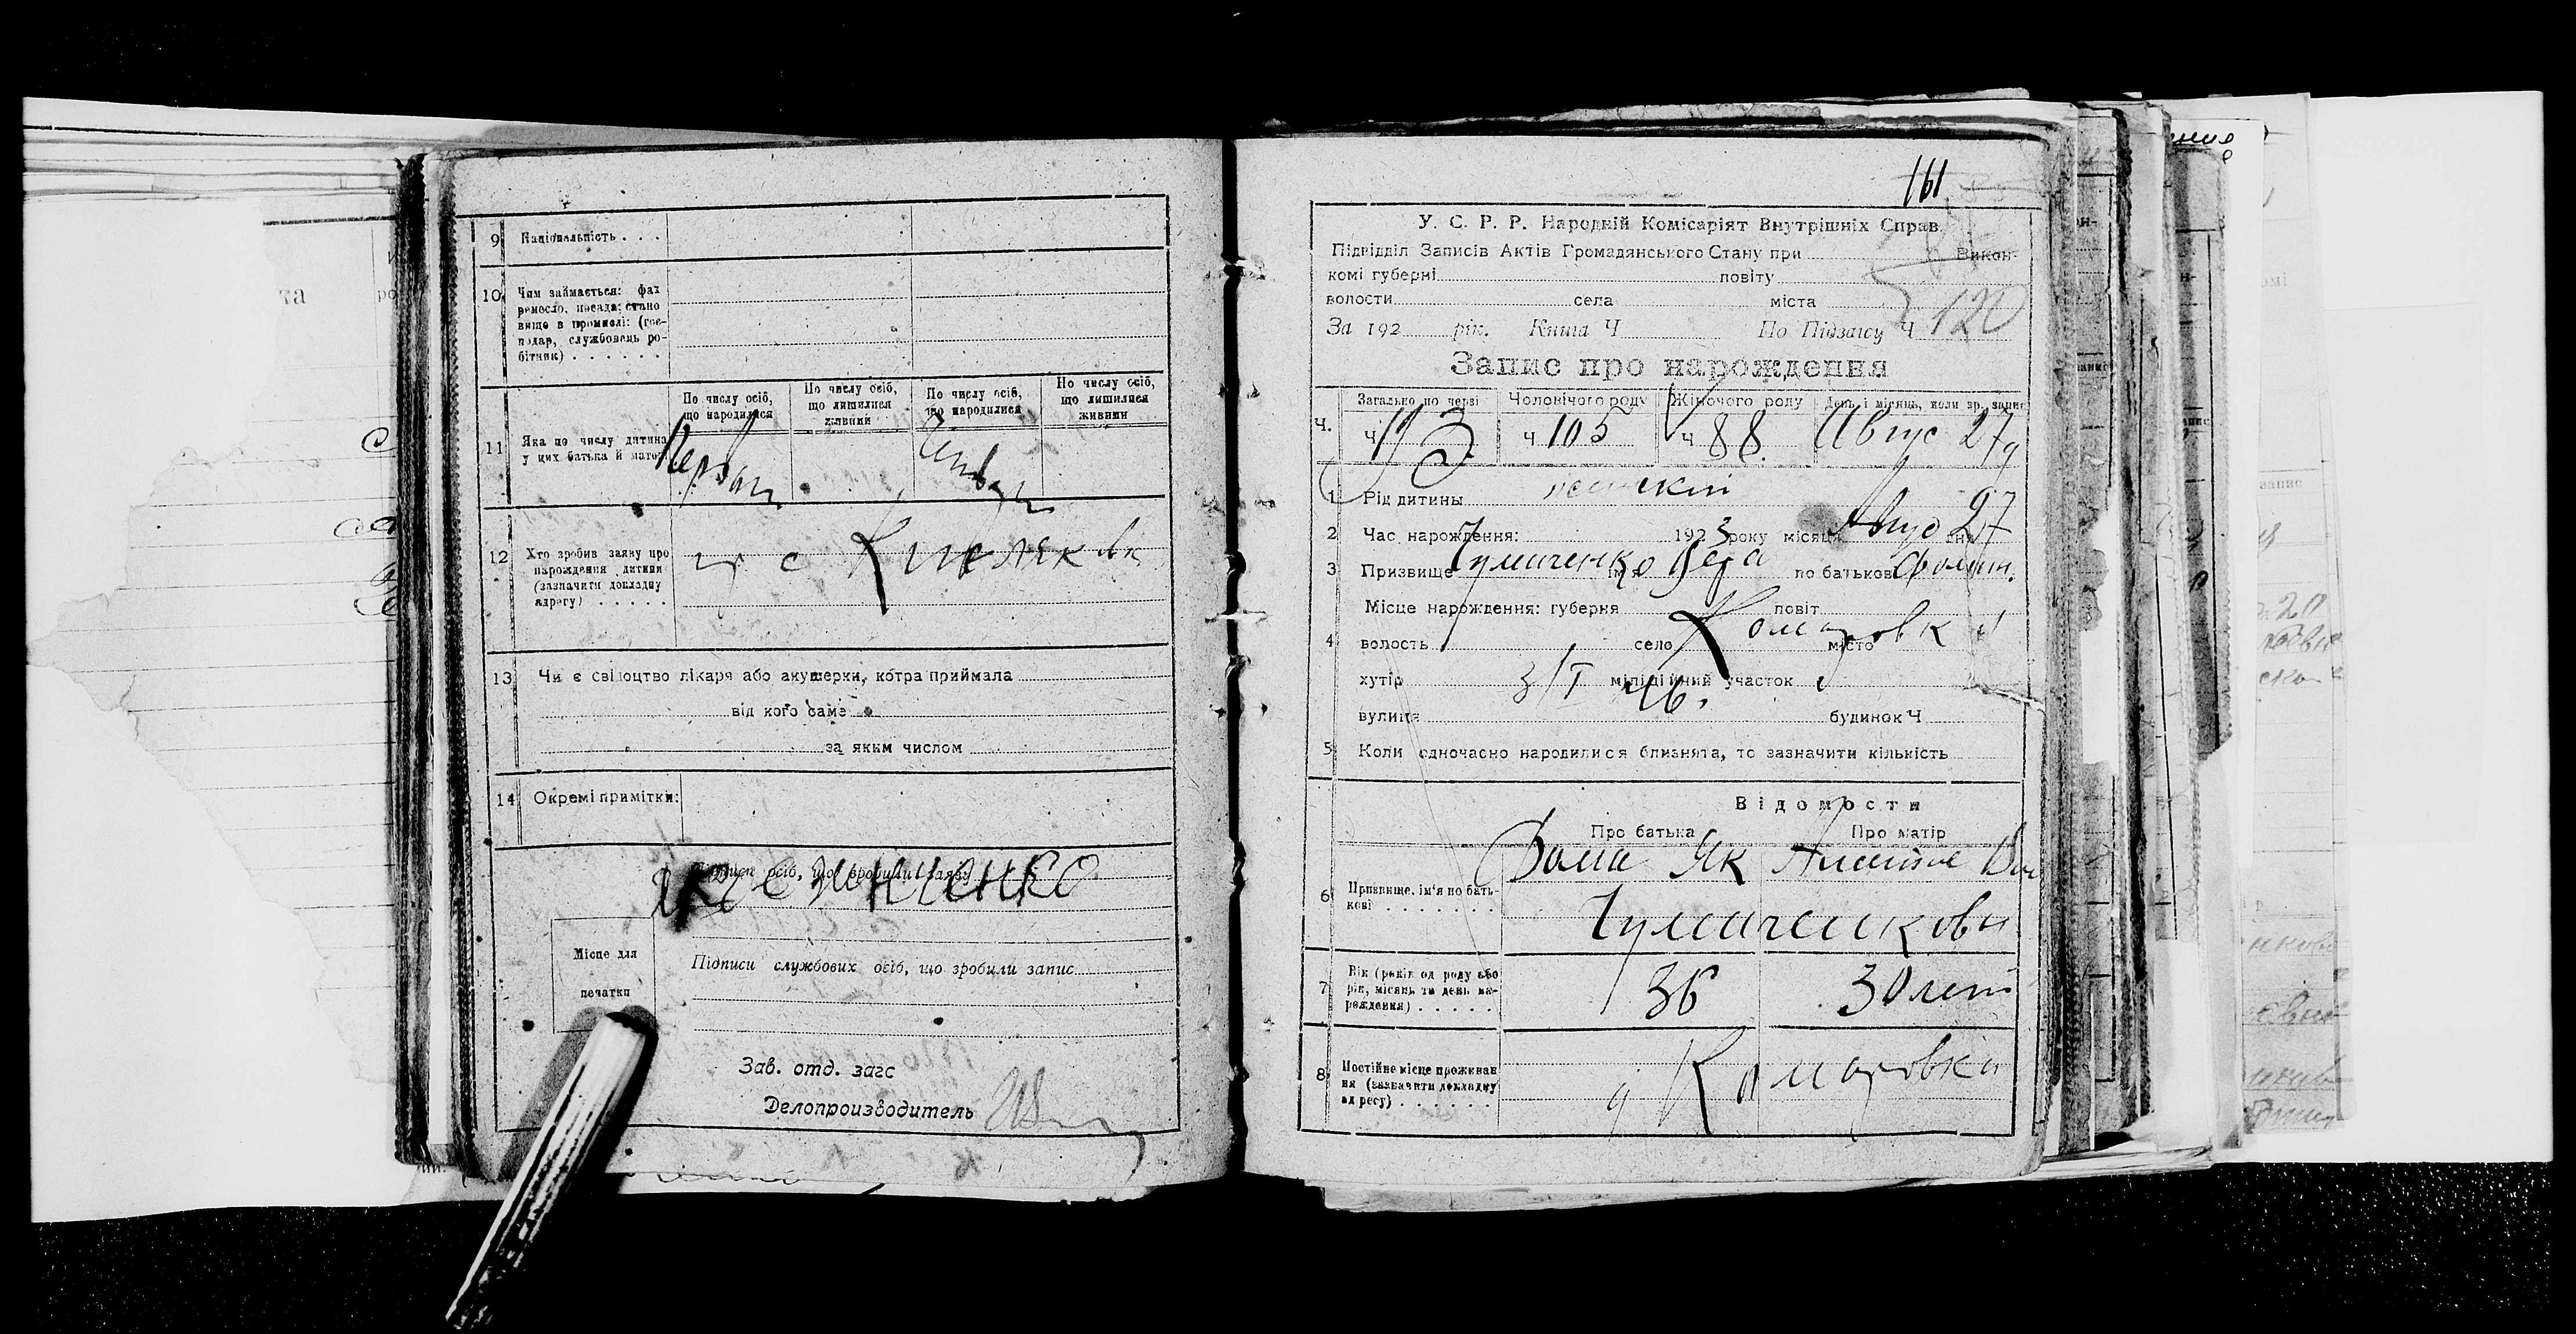 9 Національність . . .
10 Чим займається: фах
ремесло, посада: стано
вище в промислі: (гос-
подар, службовець ро-
бітник) . . . . . .
По числу осіб, що народилися
По числу осіб, що лишилися живими
По числу осіб, що народилися
По числу осіб, що лишилися живими
11 Яка по числу дитина
у цих батька й матері
12 Хто зробив заяву про
нарождення дитини
(зазначити докладну
адресу) . . . . .
с Кисляковк
13 Чи є свідоцтво лікаря або акушерки, котра приймала
від кого саме
за яким числом
14 Окремі примітки:
Підписи осіб, що зробили заяву
Місце для
печатки
Підписи службових осіб, що зробили запис
Зав. отд. загс
Делопроизводитель
161
У. С. Р. Р. Народній Комісаріят Внутрішніх Справ.
Підвідділ Записів Актів Громадянського Стану при Викон-
комі губерні повіту
волости села міста
За 192 рік. Книга Ч По Підзагсу Ч 120
Запис про нарождення
Загально по черзі Чоловічого роду Жіночого роду День і місяць, коли зр. запис
Ч. ч 193 ч 105 ч 88. Август 27
1 Рід дитины женский
2 Час нарождення: 1923 року місяця Авгус дня 27
3 Призвище Чумаченко ім'я Вера по батькові Фомин.
Місце нарождення: губерня повіт
4 волость село Комаровка місто
хутір міліційний участок
вулиця будинок Ч
5 Коли одночасно народилися близнята, то зазначити кількість
Відомости
Про батька Про матір
Фома Як
6 Призвище, ім'я по бать-
кові . . . . . . .
Чумаченкови
7 Вік (років од роду або
рік, місяць та день на-
рождення) . . . . .
36 30 лет
8 Постійне місце проживан
ня (зазначити докладну
адресу) . . . . . .
Комаровки